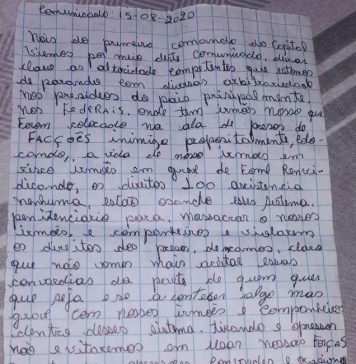 Comunicado: 15-08-2020
Nois do primeiro comando da Capital
viemos por meio deste comunicado, deixar
claro as altoridade competentes que estamos
de parando com diversas arbitrariedad
nos presidios do pais prisipalmente
nos FedeRAis, onde tem irmões nosso que
Foram colocado na ala de presos de
FACÇÕES inimigo propositalmente, colo-
cando, a vida de nosso irmãos em
risco irmões em greve de Fome Renvi-
dicando, os direitos 100 assistencia
nenhuma, estão osando esses sistema
penitenciario para, massacrar o nossos
irmões, e companheiros e violarem
os direitos dos presos, deixamos, claro
que não vamos mais aceitar essas
covardias da parte de quem quer
que seja e se a conteser algo mas
grave com nossos irmões e companheiros
dentro desses sistema, tirando e opressor
não evitaremos em usar nossas forças